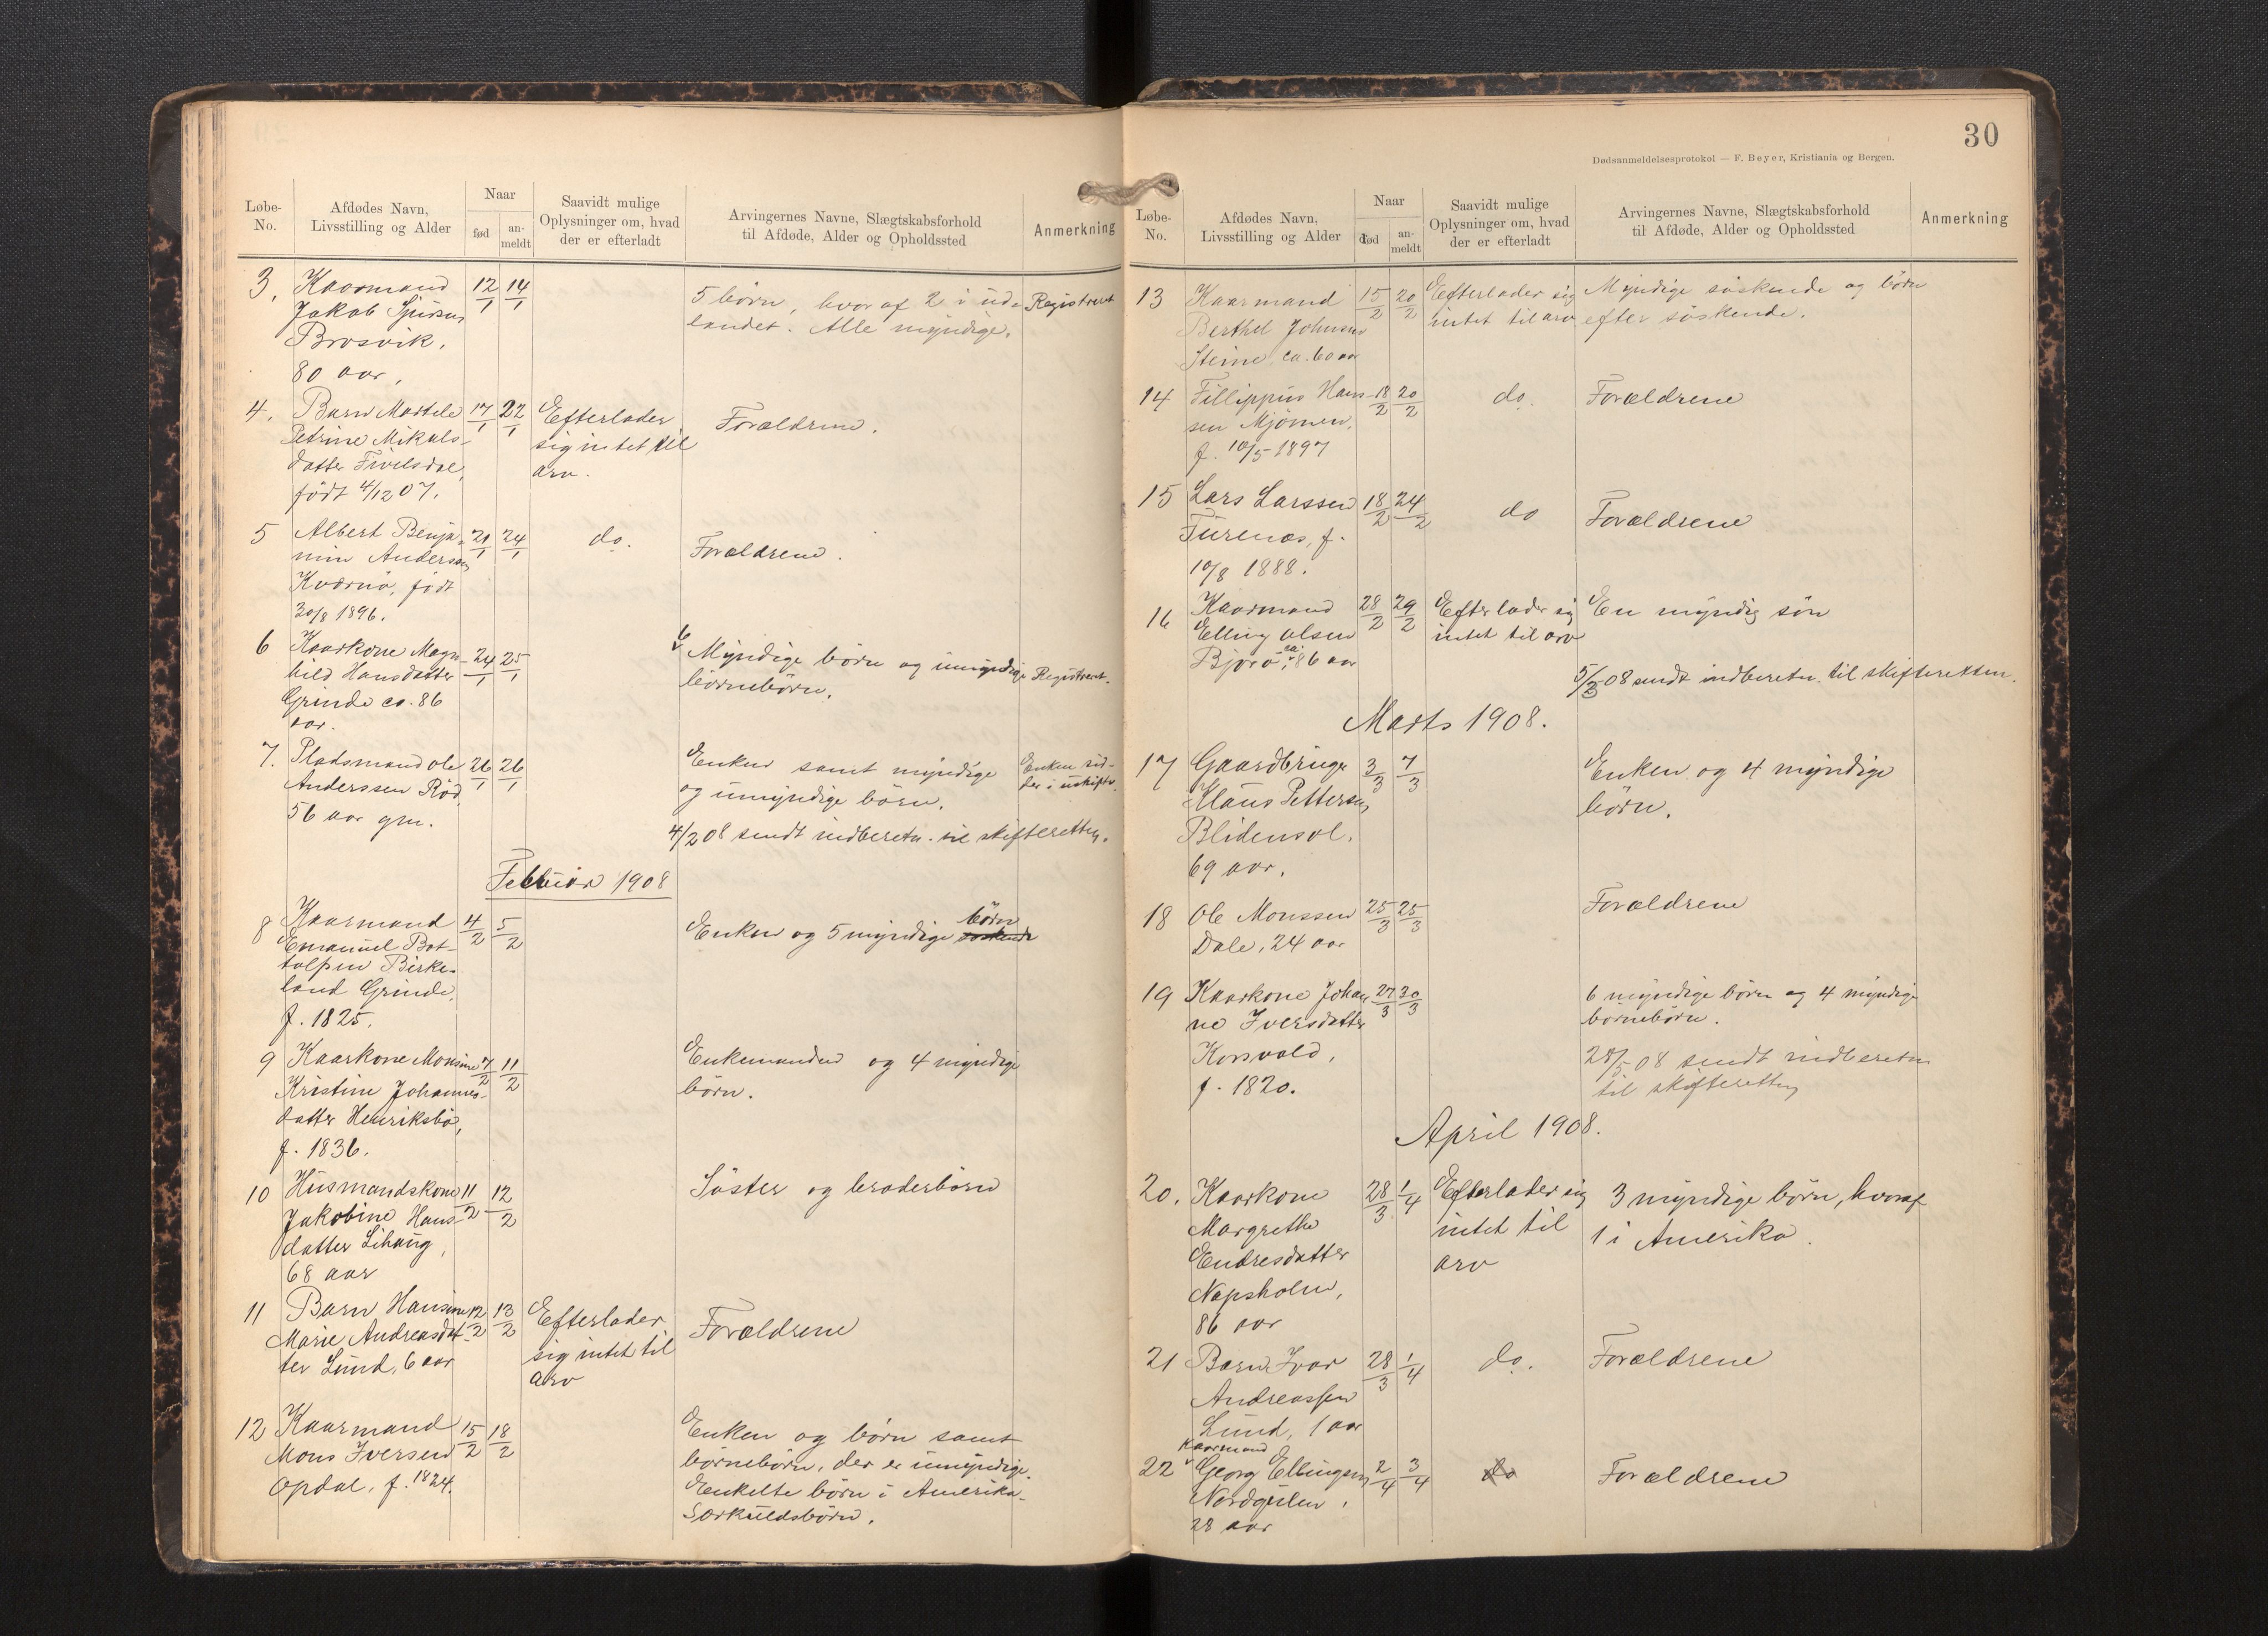 Løbe-
No.
Afdødes Navn,
Livsstilling og Alder
Naar
fød
an-
meldt
Saavidt mulige
Oplysninger om, hvad
der er efterladt
Arvingernes Navne, Slægtskabsforhold
til Afdøde, Alder og Opholdssted
Anmerkning
3, Kaarmand 12/1 14/1 5 børn, hvoraf 2 i ud- Registreret
Jakob Sjursen landet. Alle myndige.
Brosvik.
80 aar,
4. Barn Martele 17/1 22/1 Efterlader Forældrene.
Petrine Mikals- sig intet til
datter Fivelsdal, arv.
født 4/12 07.
5 Albert Benja- 21/1 24/1 do. Forældrene.
min Anderssen
Kværnø, født
30/8 1896.
6 Kaarkone Magn- 24/1 25/1 6 Myndige børn og umyndige Registreret.
hild Hansdatter børnebørn.
Grinde ca. 86
aar.
7. Pladsmand Ole 26/1 26/1 Enken samt myndige Enken sid-
Anderssen Rød og umyndige børn. der i uskifte.
56 aar gm.
4/2 08 sendt indberetn. til skifteretten.
Februar 1908
8 Kaarmand 4/2 5/2 Enken og 5 myndige søskende børn
Emanuel Bot-
tolfsen Birke-
land Grinde,
f. 1825.
9 Kaarkone Monsine 7/2 11/2 Enkemanden og 4 myndige
Kristine Johannes- børn.
datter Henriksbø,
f. 1836.
10 Husmandskone 11/2 12/2 Søster og broderbørn
Jakobine Hans-
datter Lihaug,
68 aar
11 Barn Hansine 12/2 13/2 Efterlader Forældrene
Marie Andreasdat- sig intet til
ter Lund, 6 aar arv
12 Kaarmand 15/2 18/2 Enken og børn samt
Mons Iversen børnebørn, der er umyndige.
Opdal, f. 1824. Enkelte børn i Amerika.
Særkuldsbørn.
30
Dødsanmeldelsesprotokol — F. Beyer, Kristiania og Bergen.
Løbe-
No.
Afdødes Navn,
Livsstilling og Alder
Naar
død
an-
meldt
Saavidt mulige
Oplysninger om, hvad
der er efterladt
Arvingernes Navne, Slægtskabsforhold
til Afdøde, Alder og Opholdssted
Anmerkning
13 Kaarmand 15/2 20/2 Efterlader sig Myndige søskende og børn
Berthel Johnsen intet til arv efter søskende.
Steine ca. 60 aar
14 Fillippus Hans- 18/2 20/2 do. Forældrene
sen Mjømen,
f. 10/5 1897
15 Lars Larssen 18/2 24/2 do Forældrene
Furenæs, f.
10/8 1888.
16 Kaarmand 28/2 29/2 Efterlader sig En myndig søn
Elling Olsen intet til arv
Bjorø, ca. 86 aar
5/3 08 sendt indberetn. til skifteretten.
Marts 1908.
17 Gaardbruger 3/3 7/3 Enken og 4 myndige
Klaus Pettersen børn.
Blidensol.
69 aar.
18 Ole Monssen 25/3 25/3 Forældrene
Dale, 24 aar
19 Kaarkone Johan- 27/3 30/3 6 myndige børn og 4 myndige
ne Iversdatter børnebørn.
Korsvold,
f. 1820.
28/5 08 sendt indberetn
til skifteretten
April 1908.
20. Kaarkone 28/3 1/4 Efterlader sig 3 myndige børn, hvoraf
Margrethe intet til 1 i Amerika.
Endresdatter arv
Napsholm,
86 aar
21 Barn Ivar 28/3 1/4 do. Forældrene
Andreassen
Lund, 1 aar
Kaarmand
22 Georg Ellingsen 2/4 3/4 do Forældrene
Nordgulen,
28 aar